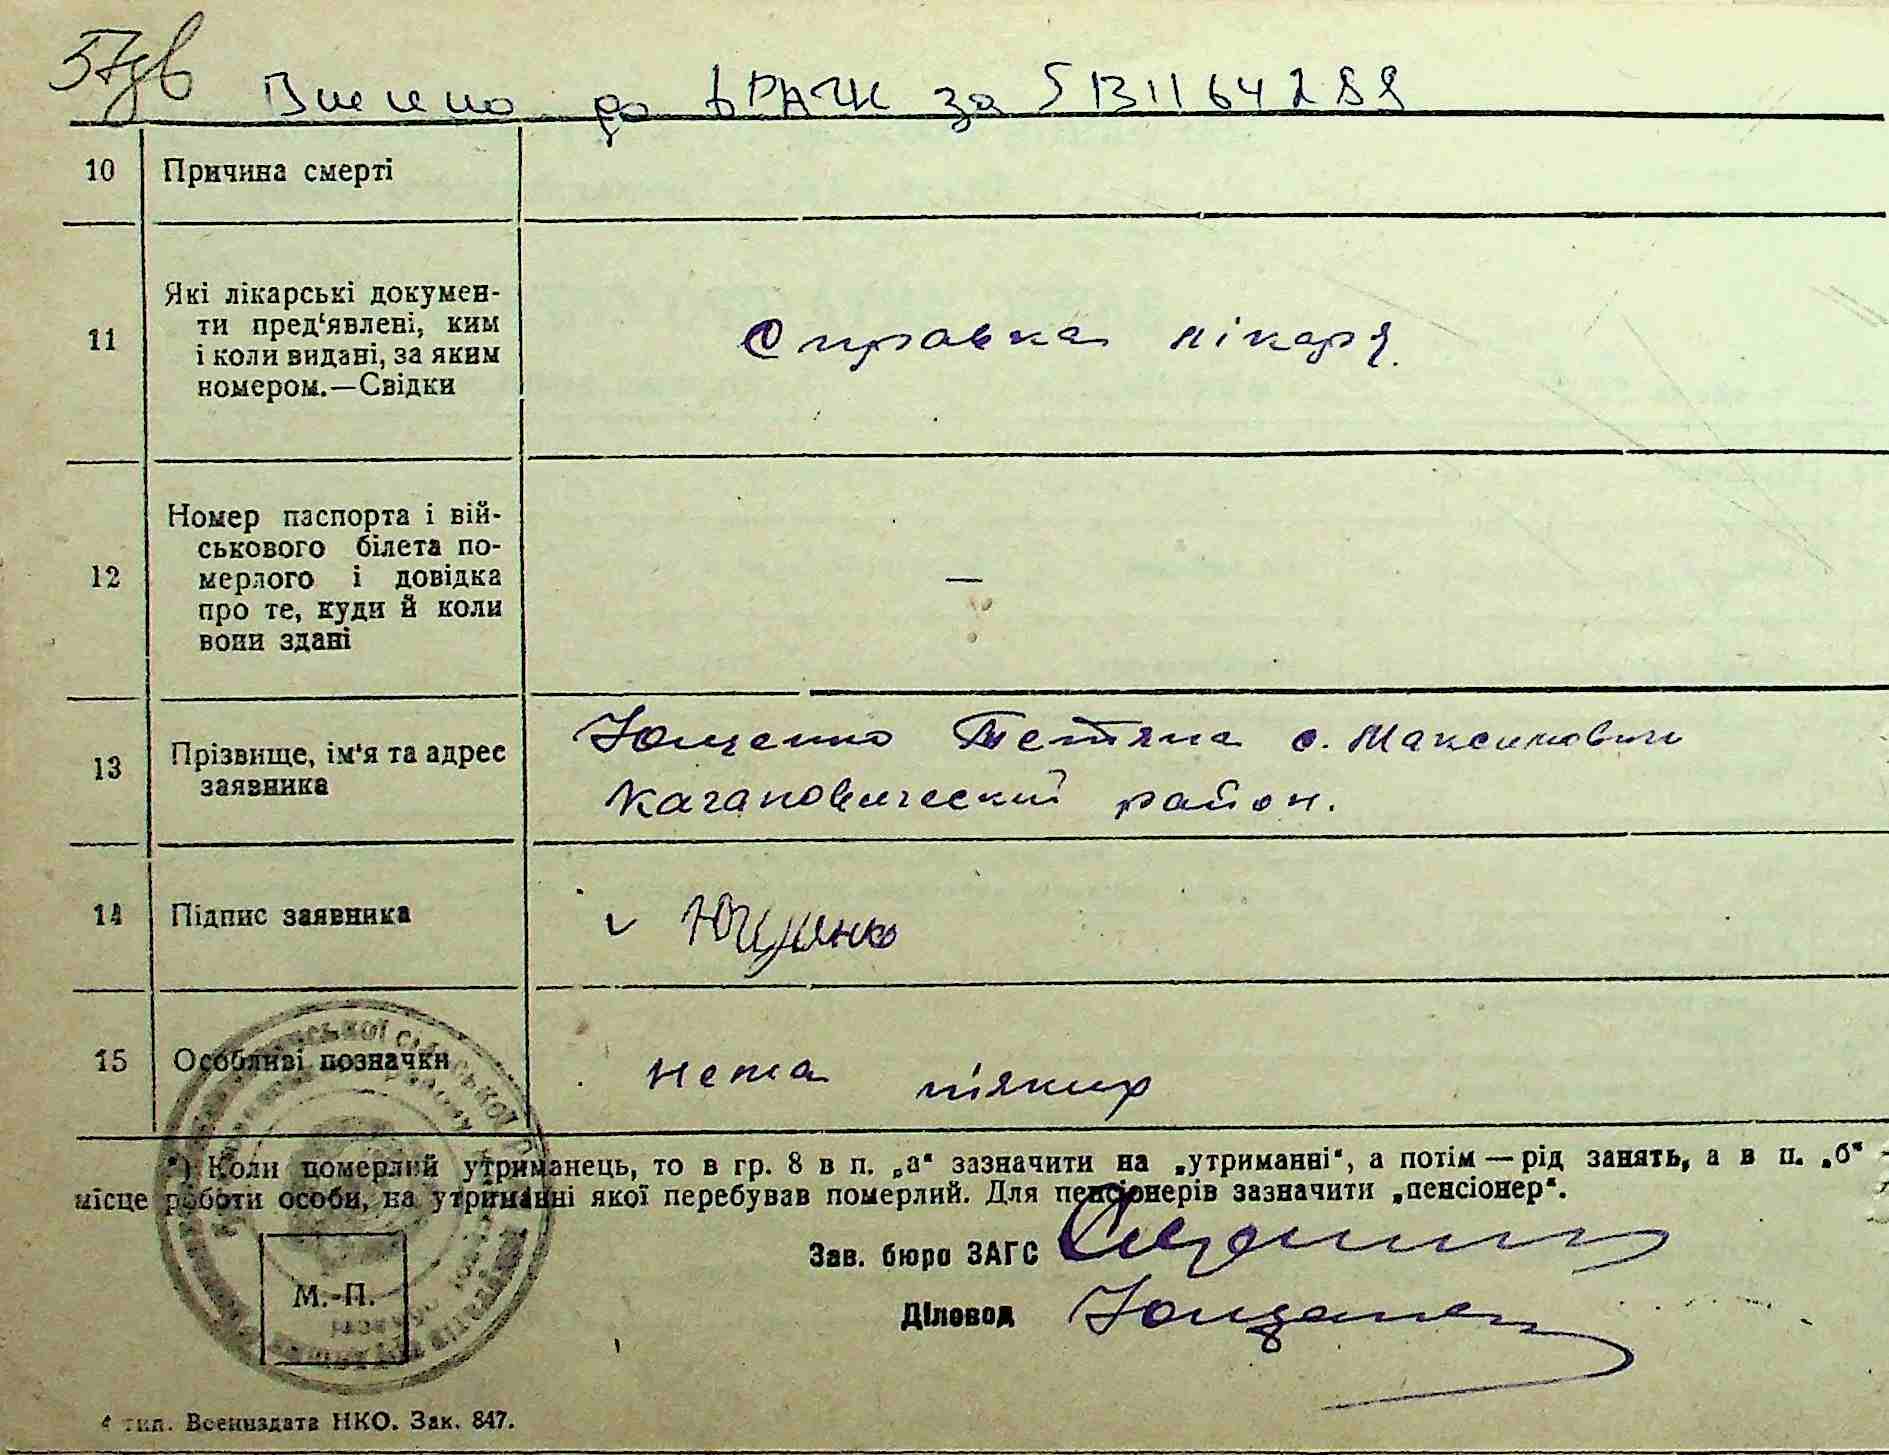 Внесено до ДРАЦС за 51311642
10 Причина смерті
11 Які лікарські докумен-
ти пред'явлені, ким
і коли видані, за яким
номером.—Свідки
Справка лікаря.
12 Номер паспорта і вій-
ськового білета по-
мерлого і довідка
про те, куди й коли
вони здані
—
13 Прізвище, ім'я та адрес
заявника
Ющенко Тетяна с. Максимовичи
Кагановический район.
14 Підпис заявника
Ющенко
15 Особливі позначки
нема ніяких
*) Коли померлий утриманець, то в гр. 8 в п. „а“ зазначити на „утриманні“, а потім — рід занять, а в п. „б“ -
місце роботи особи, на утриманні якої перебував померлий. Для пенсіонерів зазначити „пенсіонер“.
Зав. бюро ЗАГС
Діловод
М.-П.
4 тип. Воениздата НКО. Зак. 847.